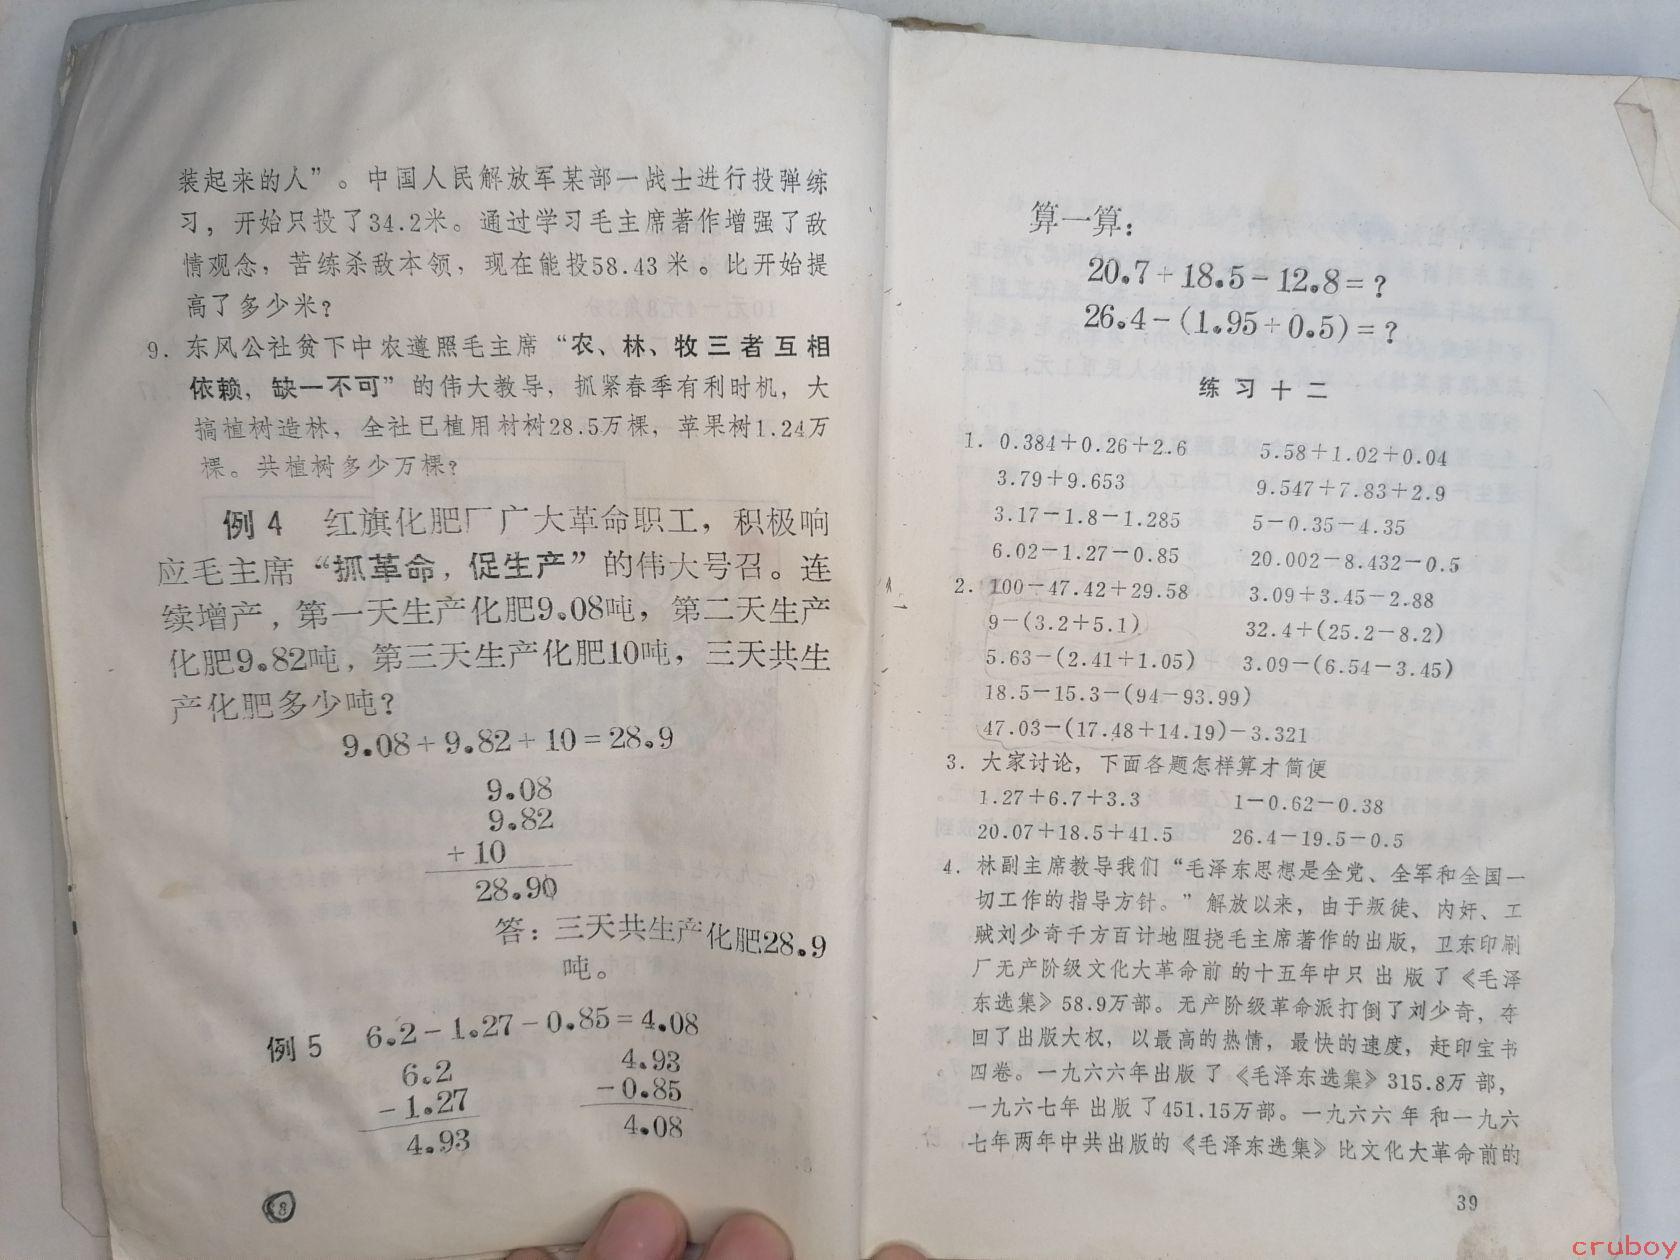 装起来的人”。中国人民解放军某部一战士进行投弹练
习，开始只投了34.2米。通过学习毛主席著作增强了敌
情观念，苦练杀敌本领，现在能投58.43米。比开始提
高了多少米？
9. 东风公社贫下中农遵照毛主席“农、林、牧三者互相
依赖，缺一不可”的伟大教导，抓紧春季有利时机，大
搞植树造林，全社已植用材树28.5万棵，苹果树1.24万
棵。共植树多少万棵？
例4 红旗化肥厂广大革命职工，积极响
应毛主席“抓革命，促生产”的伟大号召。连
续增产，第一天生产化肥9.08吨，第二天生产
化肥9.82吨，第三天生产化肥10吨，三天共生
产化肥多少吨？
9.08+9.82+10=28.9
9.08
9.82
+10
28.90
答：三天共生产化肥28.9
吨。
例5 6.2-1.27-0.85=4.08
6.2 4.93
-1.27 -0.85
4.93 4.08
算一算：
20.7+18.5-12.8=？
26.4-(1.95+0.5)=？
练习十二
1. 0.384+0.26+2.6 5.58+1.02+0.04
3.79+9.653 9.547+7.83+2.9
3.17-1.8-1.285 5-0.35-4.35
6.02-1.27-0.85 20.002-8.432-0.5
2. 100-47.42+29.58 3.09+3.45-2.88
9-(3.2+5.1) 32.4+(25.2-8.2)
5.63-(2.41+1.05) 3.09-(6.54-3.45)
18.5-15.3-(94-93.99)
47.03-(17.48+14.19)-3.321
3. 大家讨论，下面各题怎样算才简便
1.27+6.7+3.3 1-0.62-0.38
20.07+18.5+41.5 26.4-19.5-0.5
4. 林副主席教导我们“毛泽东思想是全党、全军和全国一
切工作的指导方针。”解放以来，由于叛徒、内奸、工
贼刘少奇千方百计地阻挠毛主席著作的出版，卫东印刷
厂无产阶级文化大革命前的十五年中只出版了《毛泽
东选集》58.9万部。无产阶级革命派打倒了刘少奇，夺
回了出版大权，以最高的热情，最快的速度，赶印宝书
四卷。一九六六年出版了《毛泽东选集》315.8万部，
一九六七年出版了451.15万部。一九六六年和一九六
七年两年中共出版的《毛泽东选集》比文化大革命前的
39
cruboy